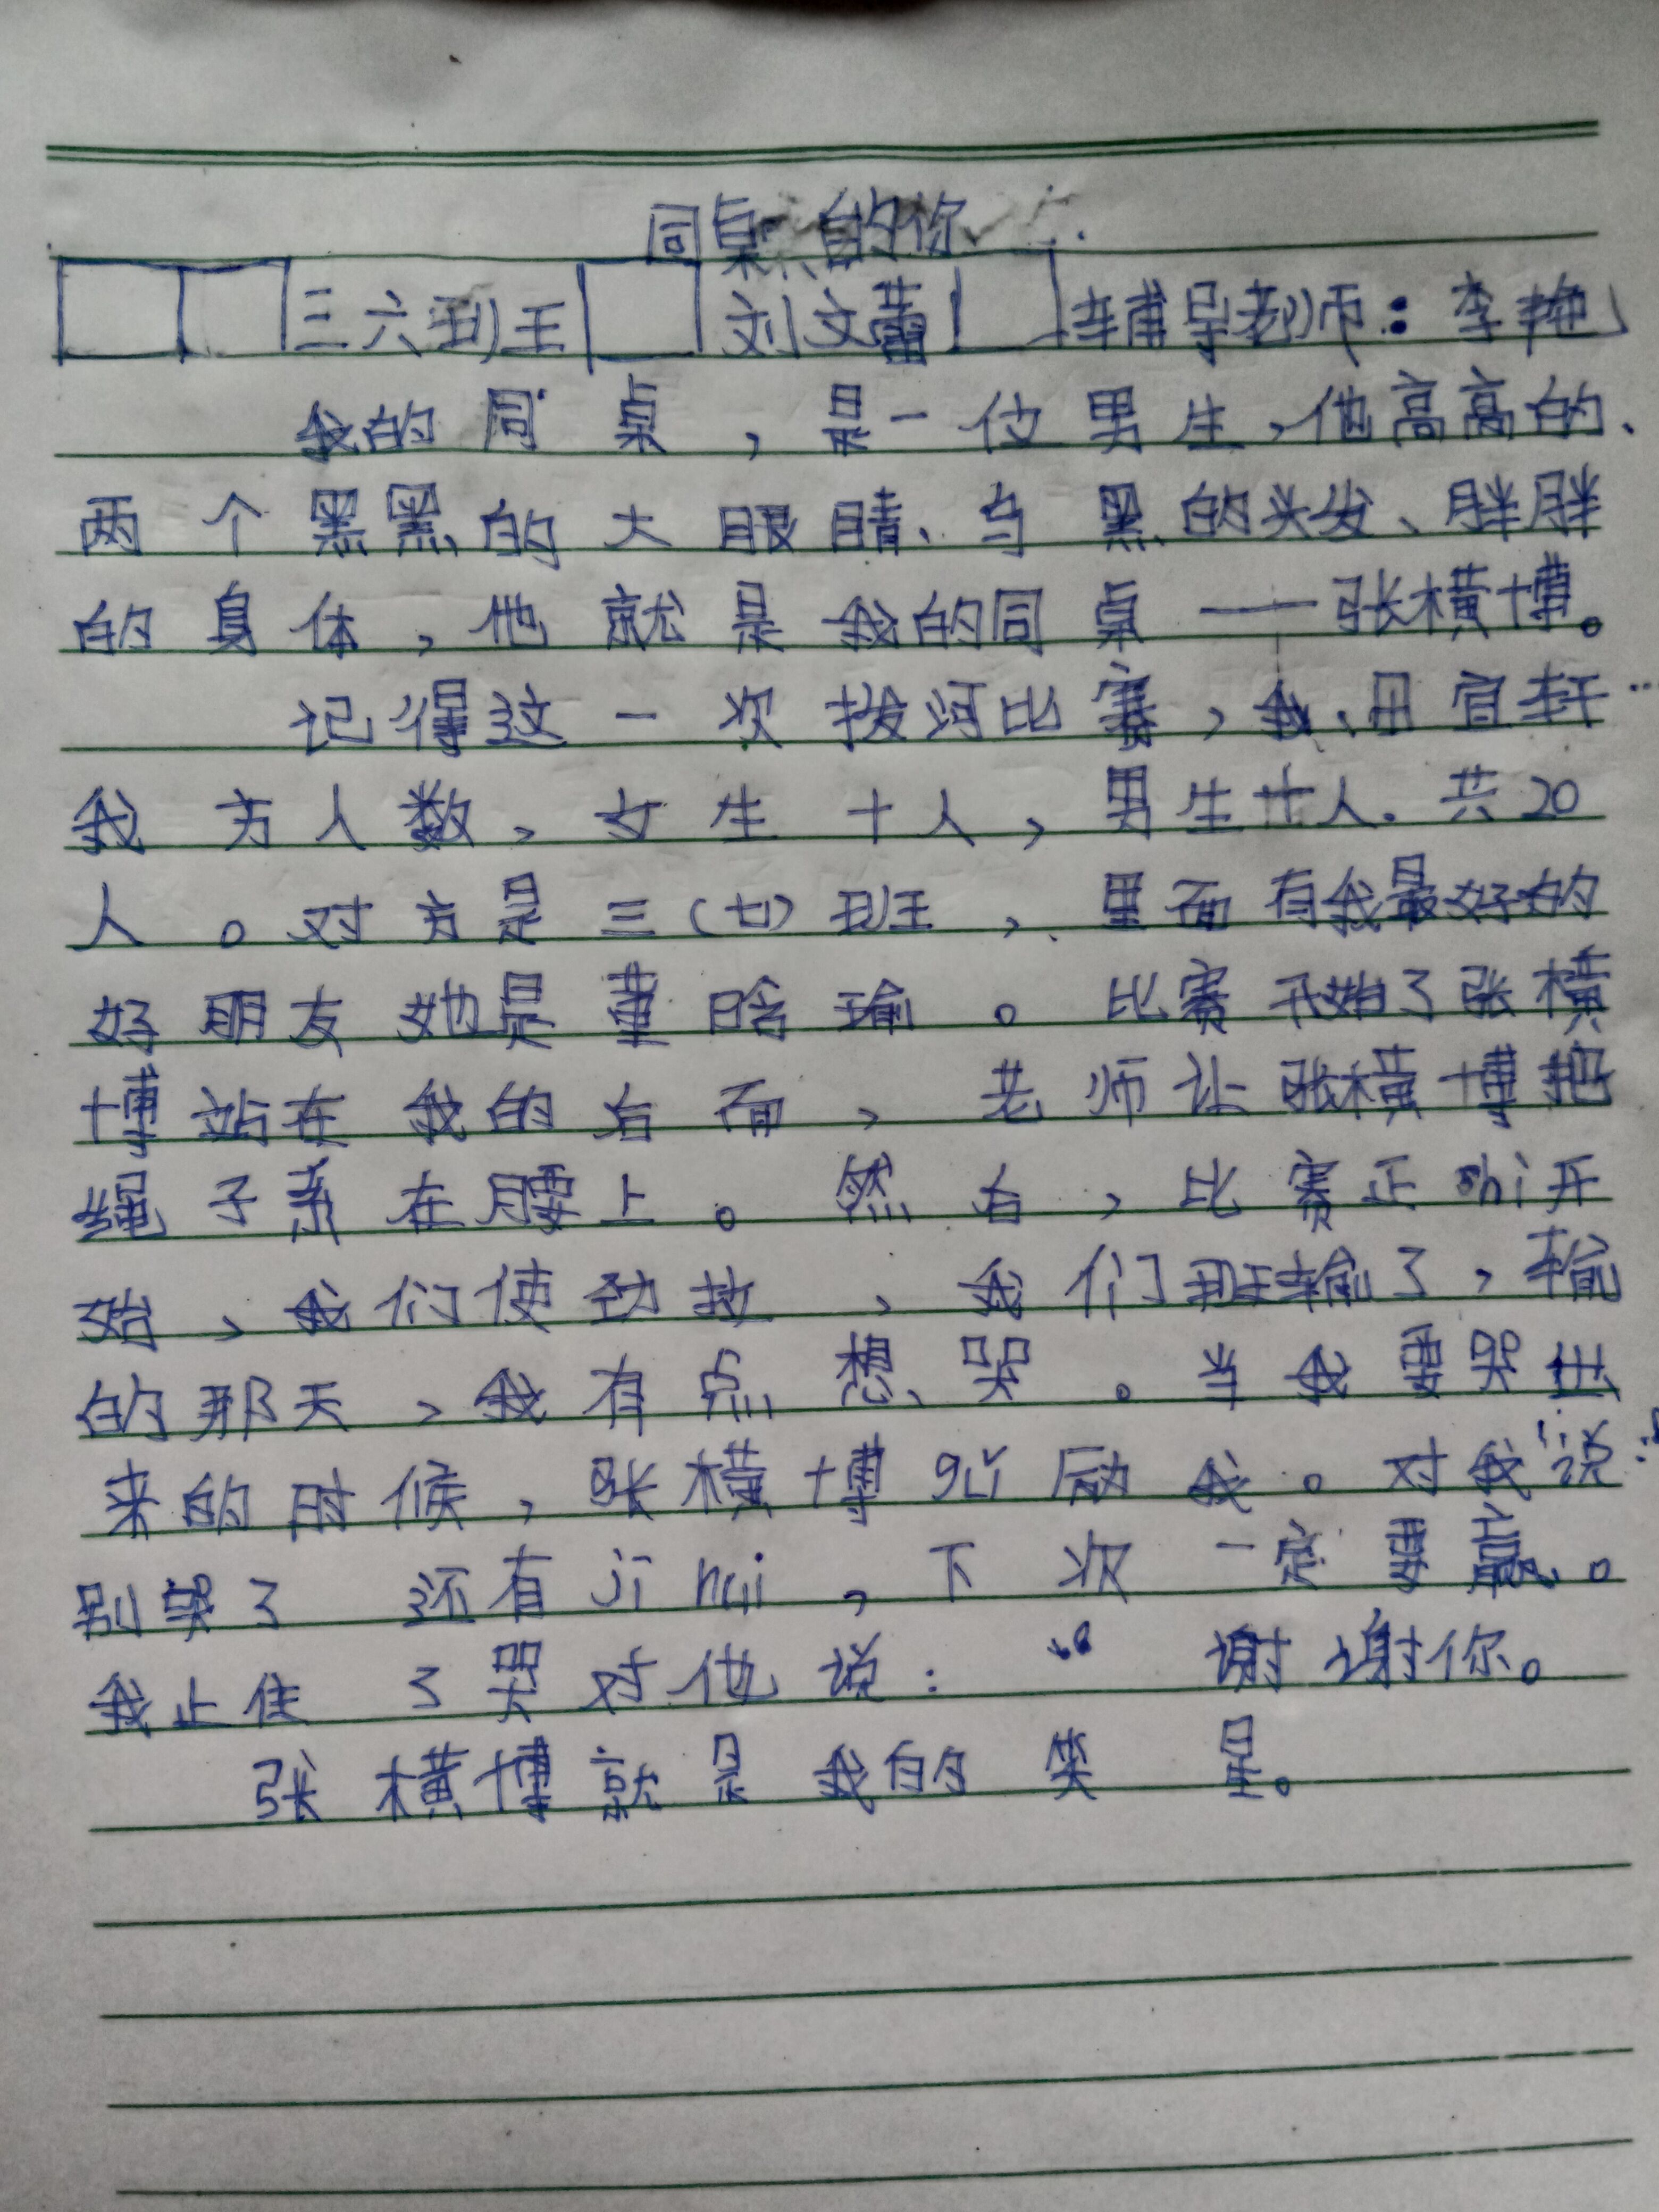 同桌的你
三六班 刘文蕾 辅导老师：李艳
我的同桌，是一位男生，他高高的、
两个黑黑的大眼睛、乌黑的头发、胖胖
的身体，他就是我的同桌——张横博。
记得这一次拔河比赛，我、 宜轩…
我方人数，女生十人，男生十人。共20
人。对方是三(七)班，里面有我最好的
好朋友她是董晗瑜。比赛开始了张横
博站在我的后面，老师让张横博把
绳子系在腰上。然后，比赛正shi开
始，我们使劲拉，我们班输了，输
的那天，我有点想哭。当我要哭出
来的时候，张横博gǔ励我。对我说：
别哭了 还有jī hui，下次一定要赢。
我止住了哭对他说：“谢谢你。
张横博就是我的笑星。